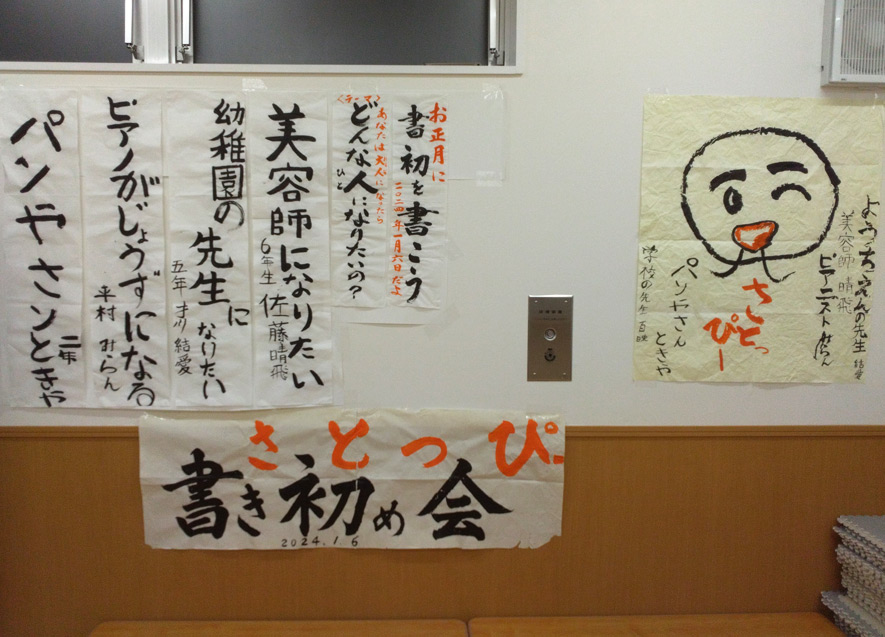 お正月に
書初を書こう
二〇二四年一月六日だよ
〈テーマ〉
あなたは大人になったら
どんな人になりたいの？
ひと
美容師になりたい
6年生 佐藤晴飛
幼稚園の先生になりたい
五年 結愛
ピアノがじょうずになる
平村 みらん
パンやさンときや
二年
さとっぴー
書き初め会
2024.1.6
ようちえんの先生 結愛
美容師 晴飛
ピアニスト みらん
さとっぴー
パンやさん
ときや
学校の先生